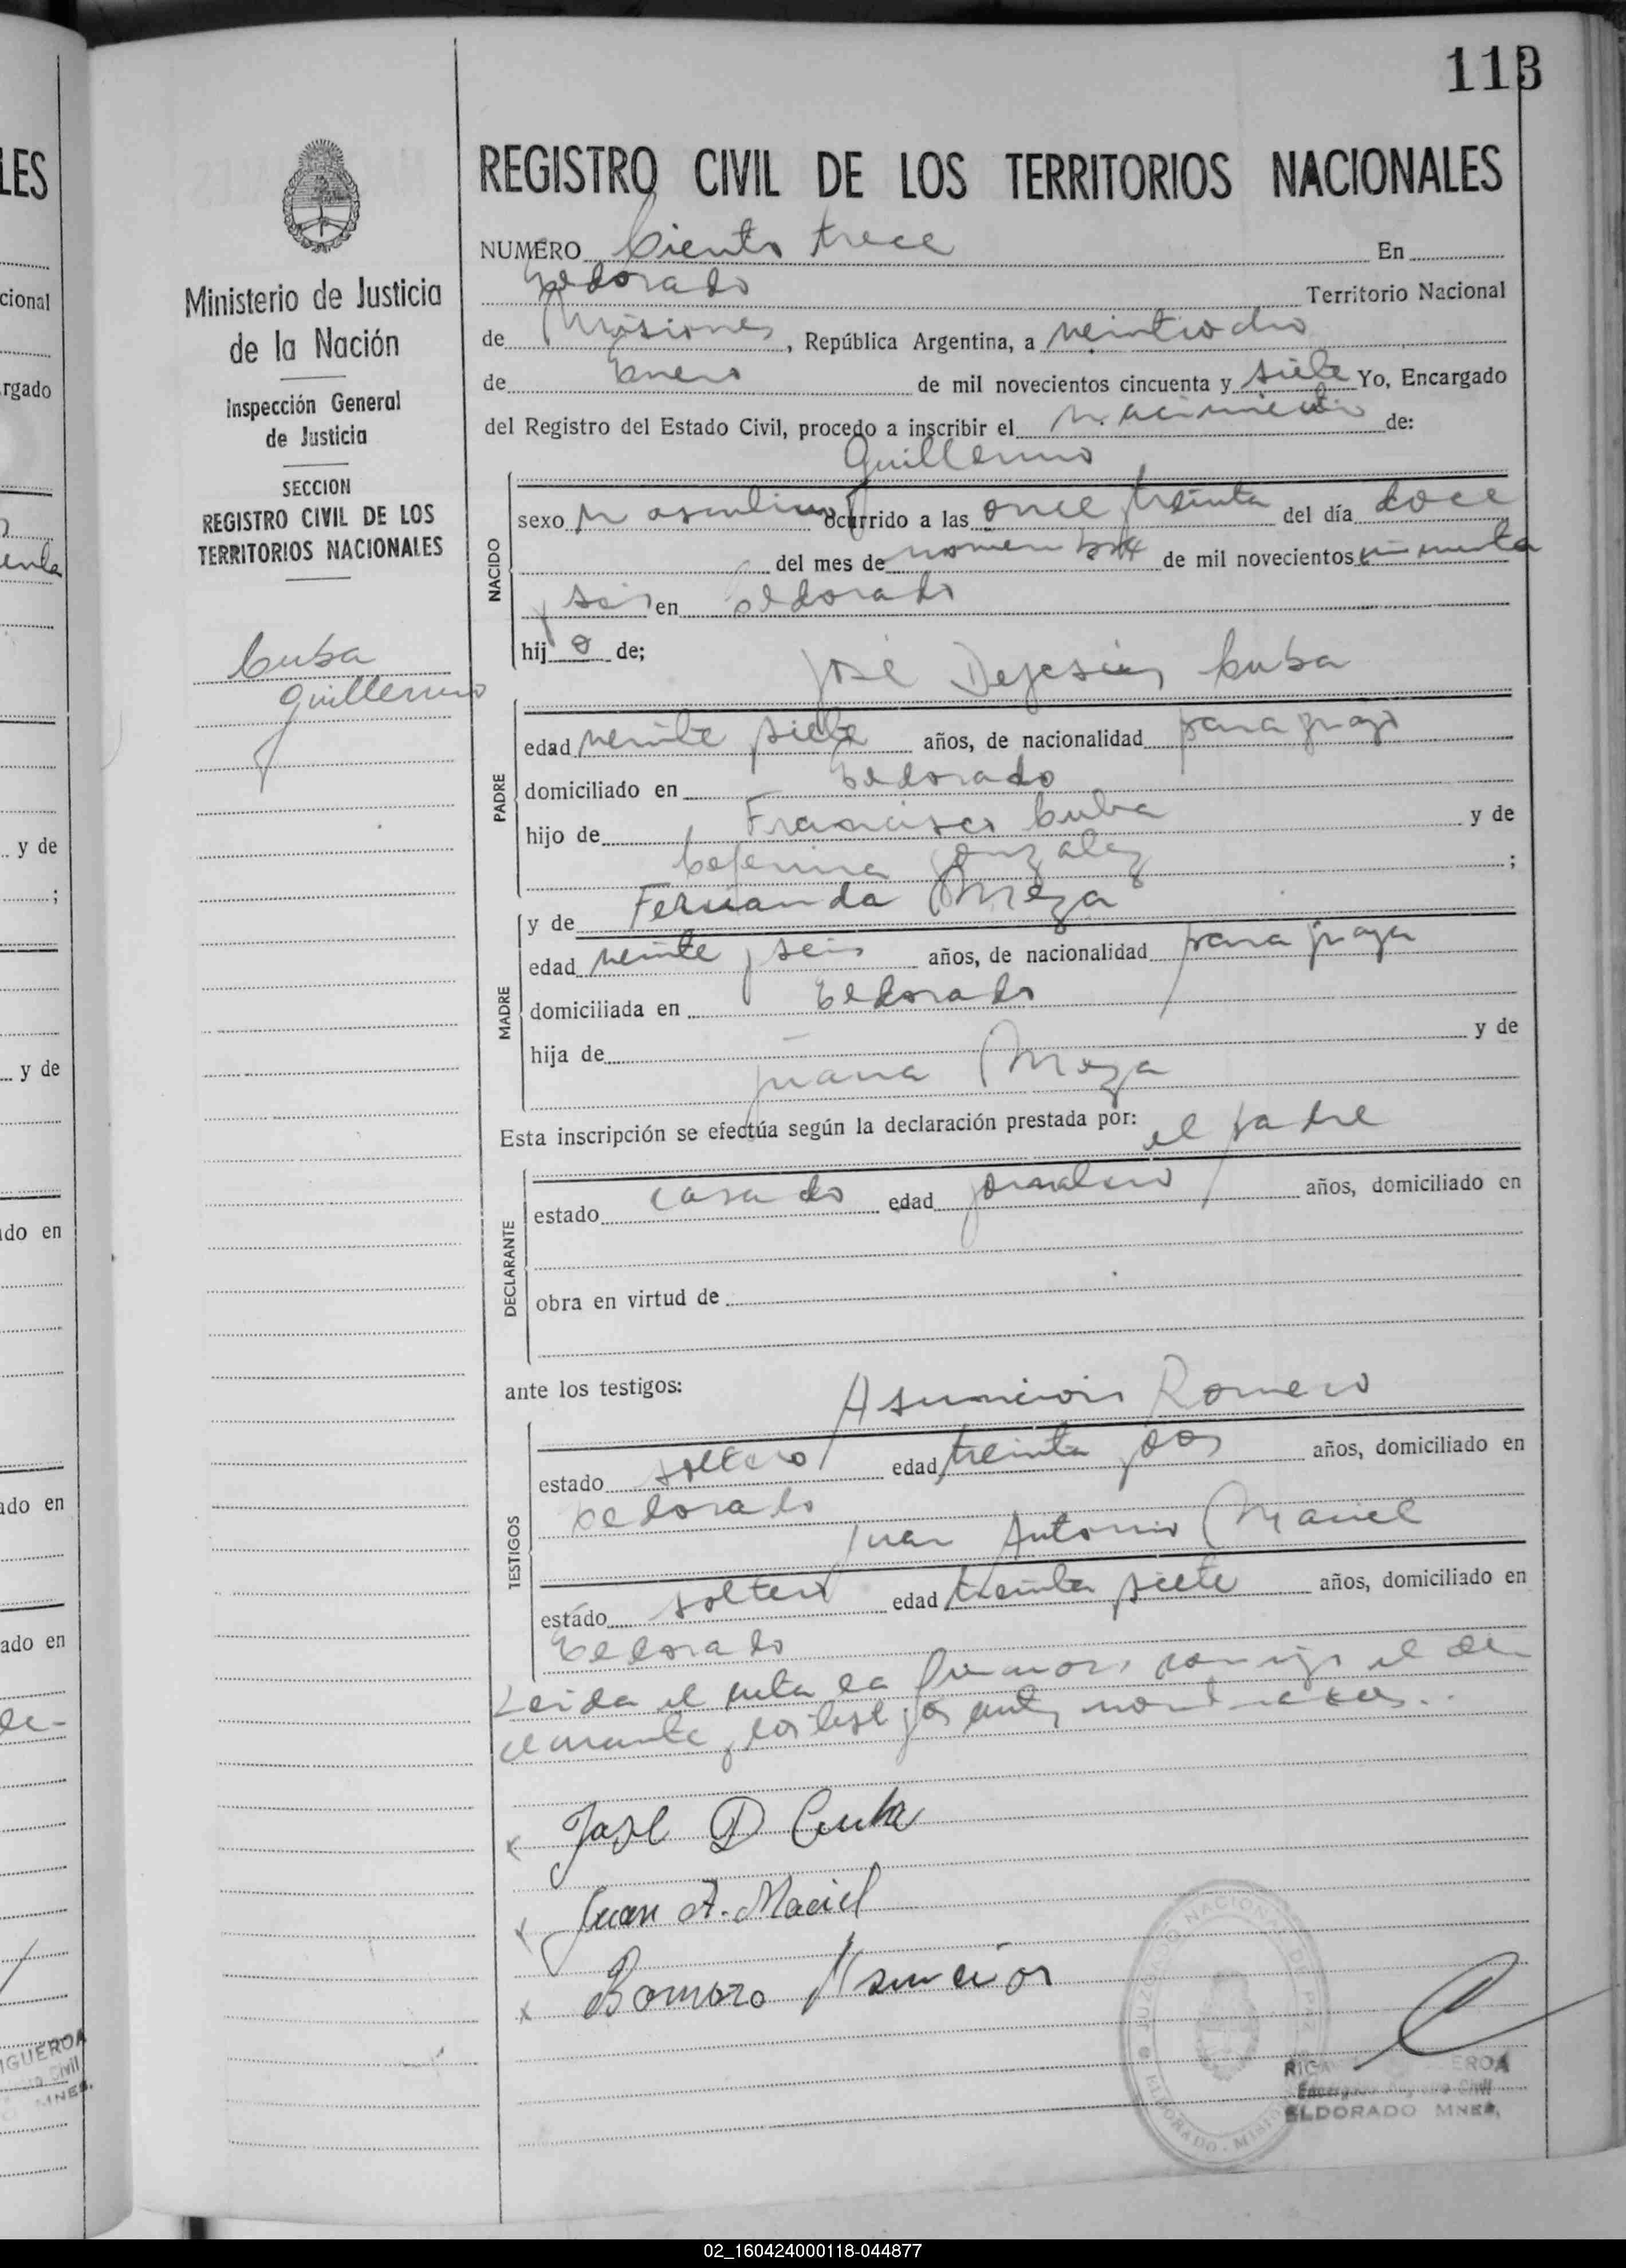 113
LES
cional
rgado
y de
;
y de
do en
ado en
ado en
IGUEROA
Civil
MNES.
Ministerio de Justicia
de la Nación
Inspección General
de Justicia
SECCION
REGISTRO CIVIL DE LOS
TERRITORIOS NACIONALES
Cuba
Guillermo
REGISTRO CIVIL DE LOS TERRITORIOS NACIONALES
NUMERO Ciento trece En
Eldorado Territorio Nacional
de Misiones, República Argentina, a veintiocho
de Enero de mil novecientos cincuenta y siete Yo, Encargado
del Registro del Estado Civil, procedo a inscribir el nacimiento de:
Guillermo
NACIDO
sexo masculino ocurrido a las once y treinta del día doce
del mes de noviembre de mil novecientos cincuenta
y seis en Eldorado
hijo de;
José Dejesús Cuba
PADRE
edad veinte y siete años, de nacionalidad paraguayo
domiciliado en Eldorado
hijo de Francisco Cuba y de
Ceferina Gonzalez ;
MADRE
y de Fernanda Meza
edad veinte y seis años, de nacionalidad paraguaya
domiciliada en Eldorado
hija de y de
Juana Meza
Esta inscripción se efectúa según la declaración prestada por: el padre
DECLARANTE
estado casado edad jornalero años, domiciliado en
obra en virtud de
ante los testigos: Asunción Romero
TESTIGOS
estado soltero edad treinta y dos años, domiciliado en
Eldorado
Juan Antonio Maciel
estado soltero edad treinta y siete años, domiciliado en
Eldorado
Leida el acta la firmaron conmigo el de-
clarante y los testigos antes nombrados.
x José D Cuba
x Juan A. Maciel
x Romero Asuncion
JUZGADO NACIONAL DE PAZ
ELDORADO - MISIONES
Encargado Registro Civil
ELDORADO MNES.
02_160424000118-044877